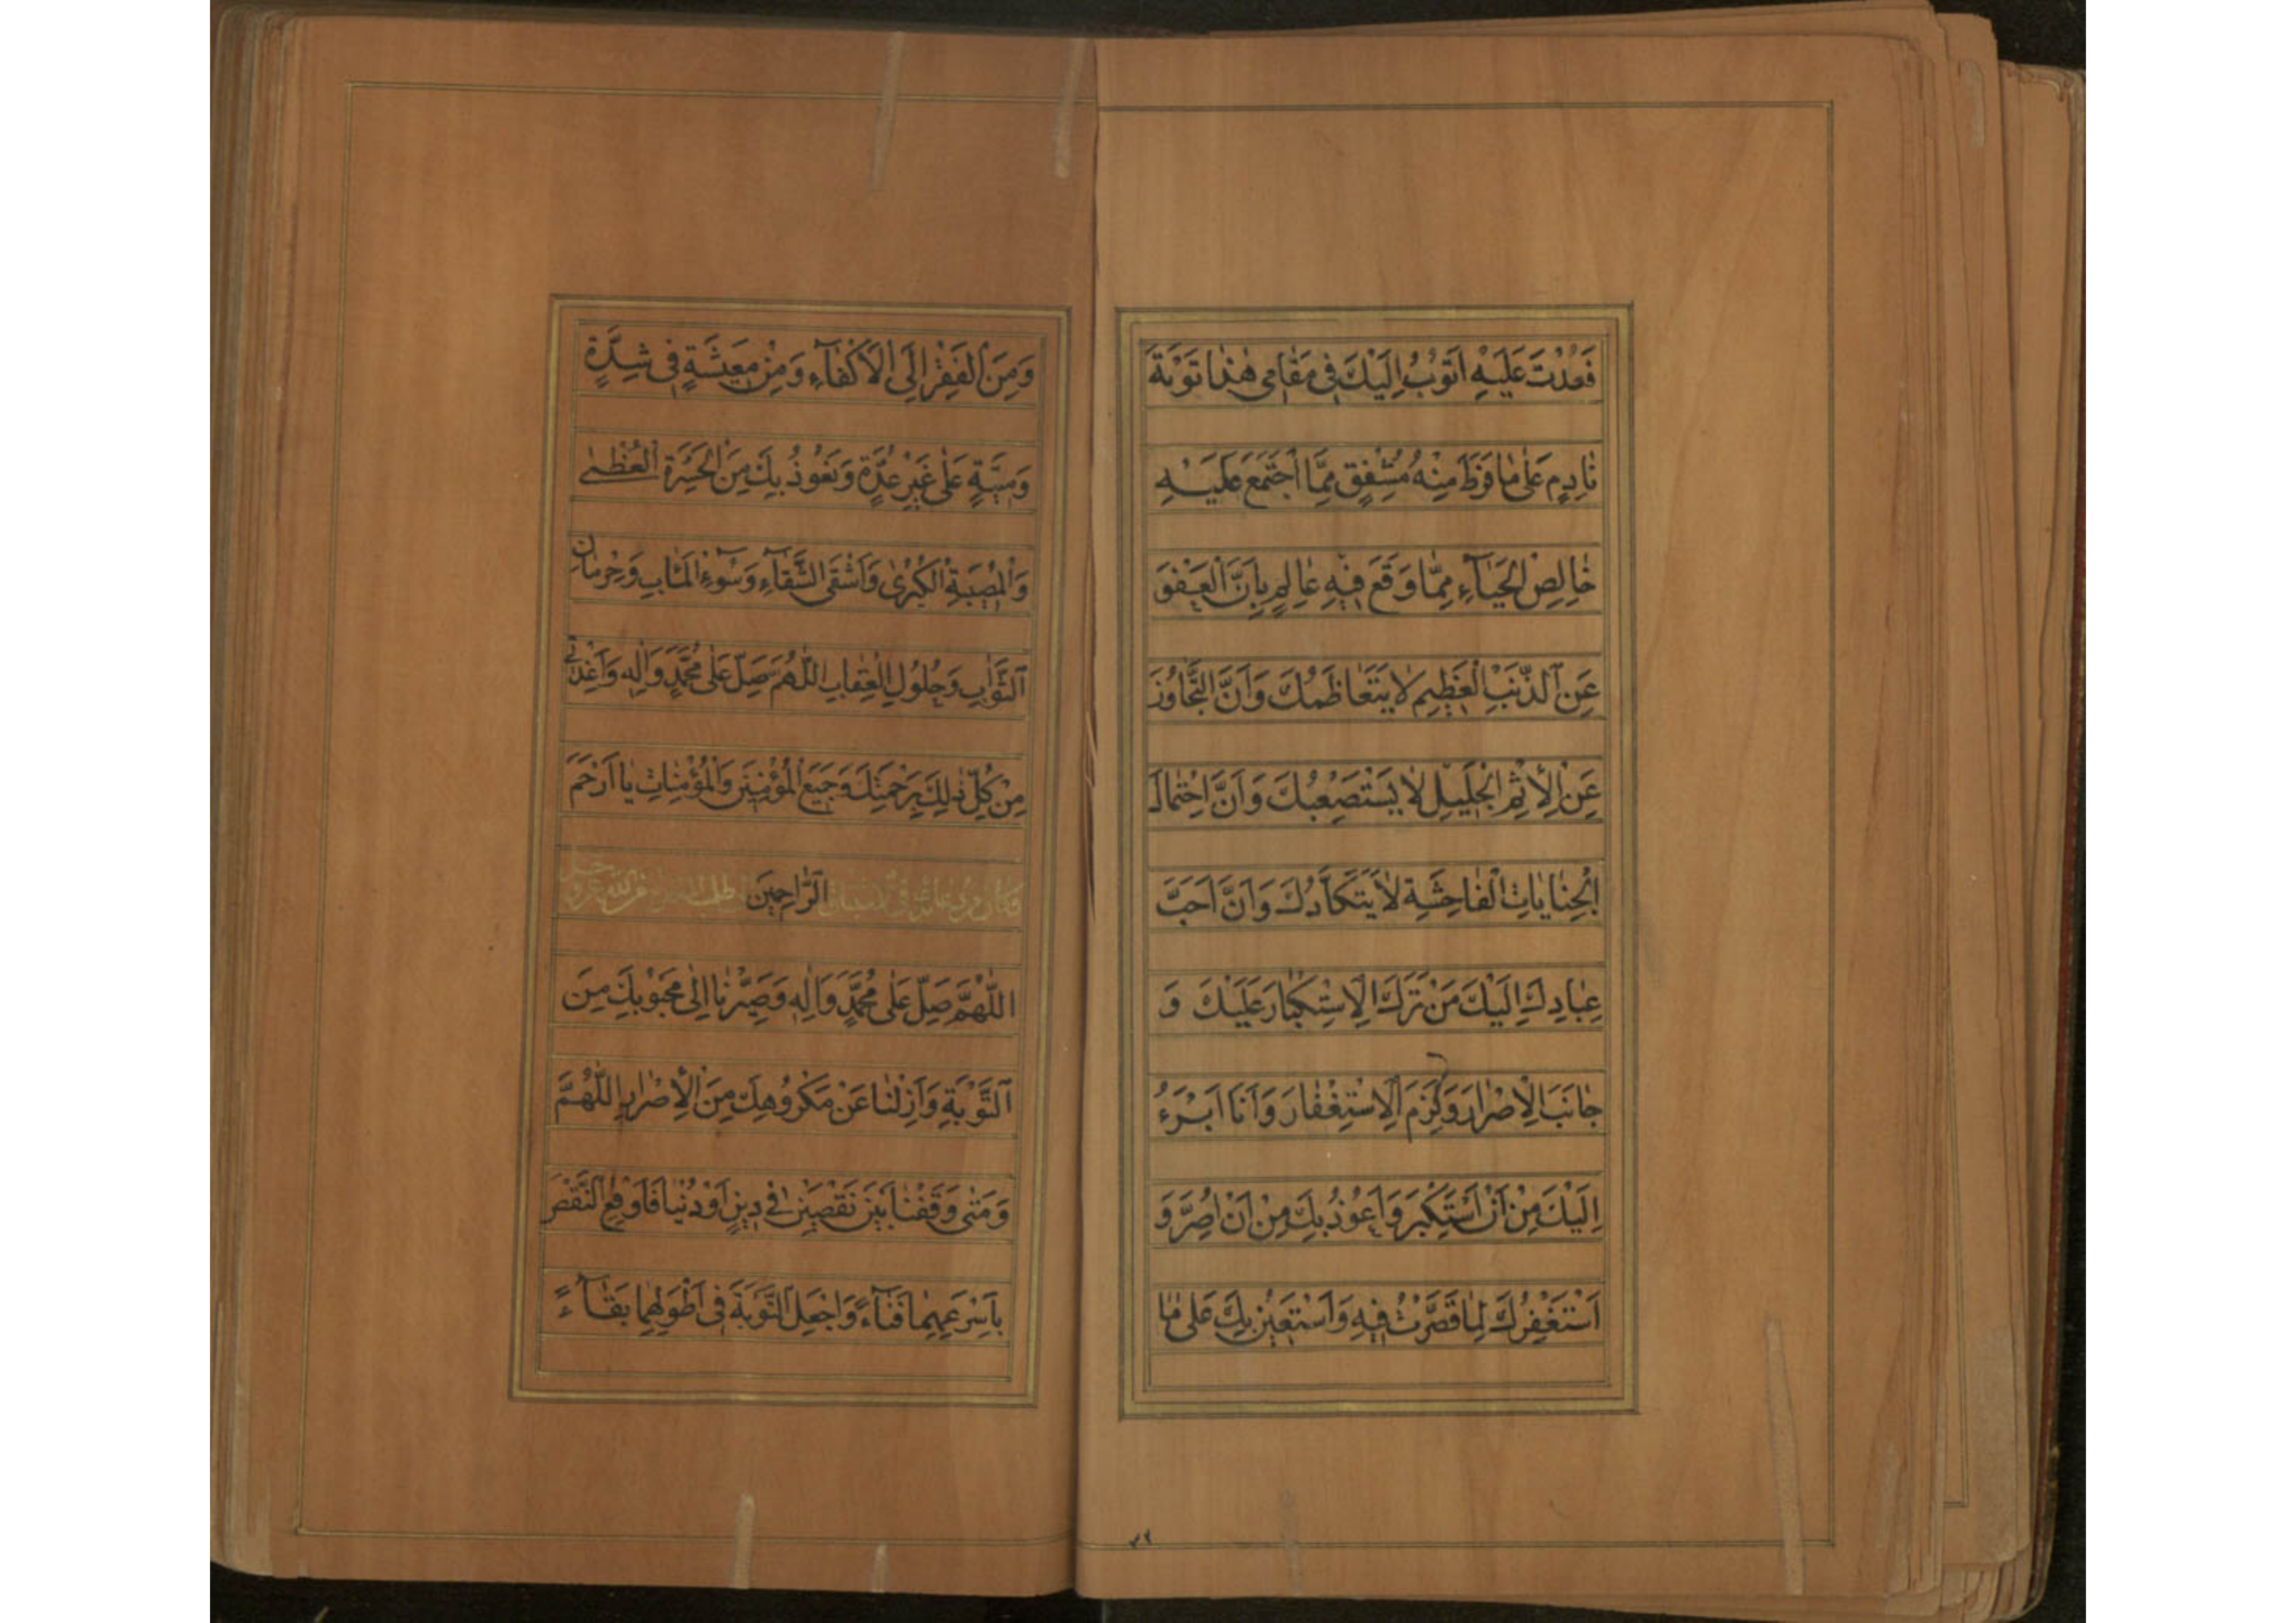 فَعُدْتَ عَلَيْهِ اَتُوبُ اِلَيْكَ فِي مَقَامِي هٰذَا تَوْبَةَ
نَادِمٍ عَلٰى مَا فَرَطَ مِنْهُ مُشْفِقٍ مِمَّا اجْتَمَعَ عَلَيْهِ
خَالِصِ الْحَيَآءِ مِمَّا وَقَعَ فِيْهِ عَالِمٍ بِاَنَّ الْعَفْوَ
عَنِ الذَّنْبِ الْعَظِيمِ لَا يَتَعَاظَمُكَ وَاَنَّ التَّجَاوُزَ
عَنِ الْاِثْمِ الْجَلِيلِ لَا يَسْتَصْعِبُكَ وَاَنَّ احْتِمَالَ
الْجِنَايَاتِ الْفَاحِشَةِ لَا يَتَكَأَّدُكَ وَاَنَّ اَحَبَّ
عِبَادِكَ اِلَيْكَ مَنْ تَرَكَ الْاِسْتِكْبَارَ عَلَيْكَ وَ
جَانَبَ الْاِصْرَارَ وَلَزِمَ الْاِسْتِغْفَارَ وَاَنَا اَبْرَءُ
اِلَيْكَ مِنْ اَنْ اَسْتَكْبِرَ وَاَعُوْذُ بِكَ مِنْ اَنْ اُصِرَّ وَ
اَسْتَغْفِرُكَ لِمَا قَصَّرْتُ فِيْهِ وَاَسْتَعِيْنُ بِكَ عَلٰى مَا
٣٢
وَمِنَ الْفَقْرِ اِلَى الْاَكْفَآءِ وَمِنْ مَعِيْشَةٍ فِي شِدَّةٍ
وَمِيْتَةٍ عَلٰى غَيْرِ عُدَّةٍ وَنَعُوْذُ بِكَ مِنَ الْحَسْرَةِ الْعُظْمٰى
وَالْمُصِيْبَةِ الْكُبْرٰى وَاَشْقَى الشَّقَآءِ وَسُوْٓءِ الْمَاٰبِ وَحِرْمَانِ
الثَّوَابِ وَحُلُوْلِ الْعِقَابِ اللّٰهُمَّ صَلِّ عَلٰى مُحَمَّدٍ وَاٰلِهِ وَاَعِذْنِي
مِنْ كُلِّ ذٰلِكَ بِرَحْمَتِكَ وَجَمِيْعَ الْمُؤْمِنِيْنَ وَالْمُؤْمِنَاتِ يَا اَرْحَمَ
الرَّاحِمِينَ وكان من دعائه في الاشتياق الى طلب المغفرة من الله عز وجل
اللّٰهُمَّ صَلِّ عَلٰى مُحَمَّدٍ وَاٰلِهِ وَصَيِّرْنَا اِلٰى مَحْبُوْبِكَ مِنَ
التَّوْبَةِ وَاَزِلْنَا عَنْ مَكْرُوْهِكَ مِنَ الْاِصْرَارِ اللّٰهُمَّ
وَمَتٰى وَقَفْنَا بَيْنَ نَقْصَيْنِ فِي دِيْنٍ اَوْ دُنْيَا فَاَوْقِعِ النَّقْصَ
بِاَسْرَعِهِمَا فَنَآءً وَاجْعَلِ التَّوْبَةَ فِي اَطْوَلِهِمَا بَقَآءً